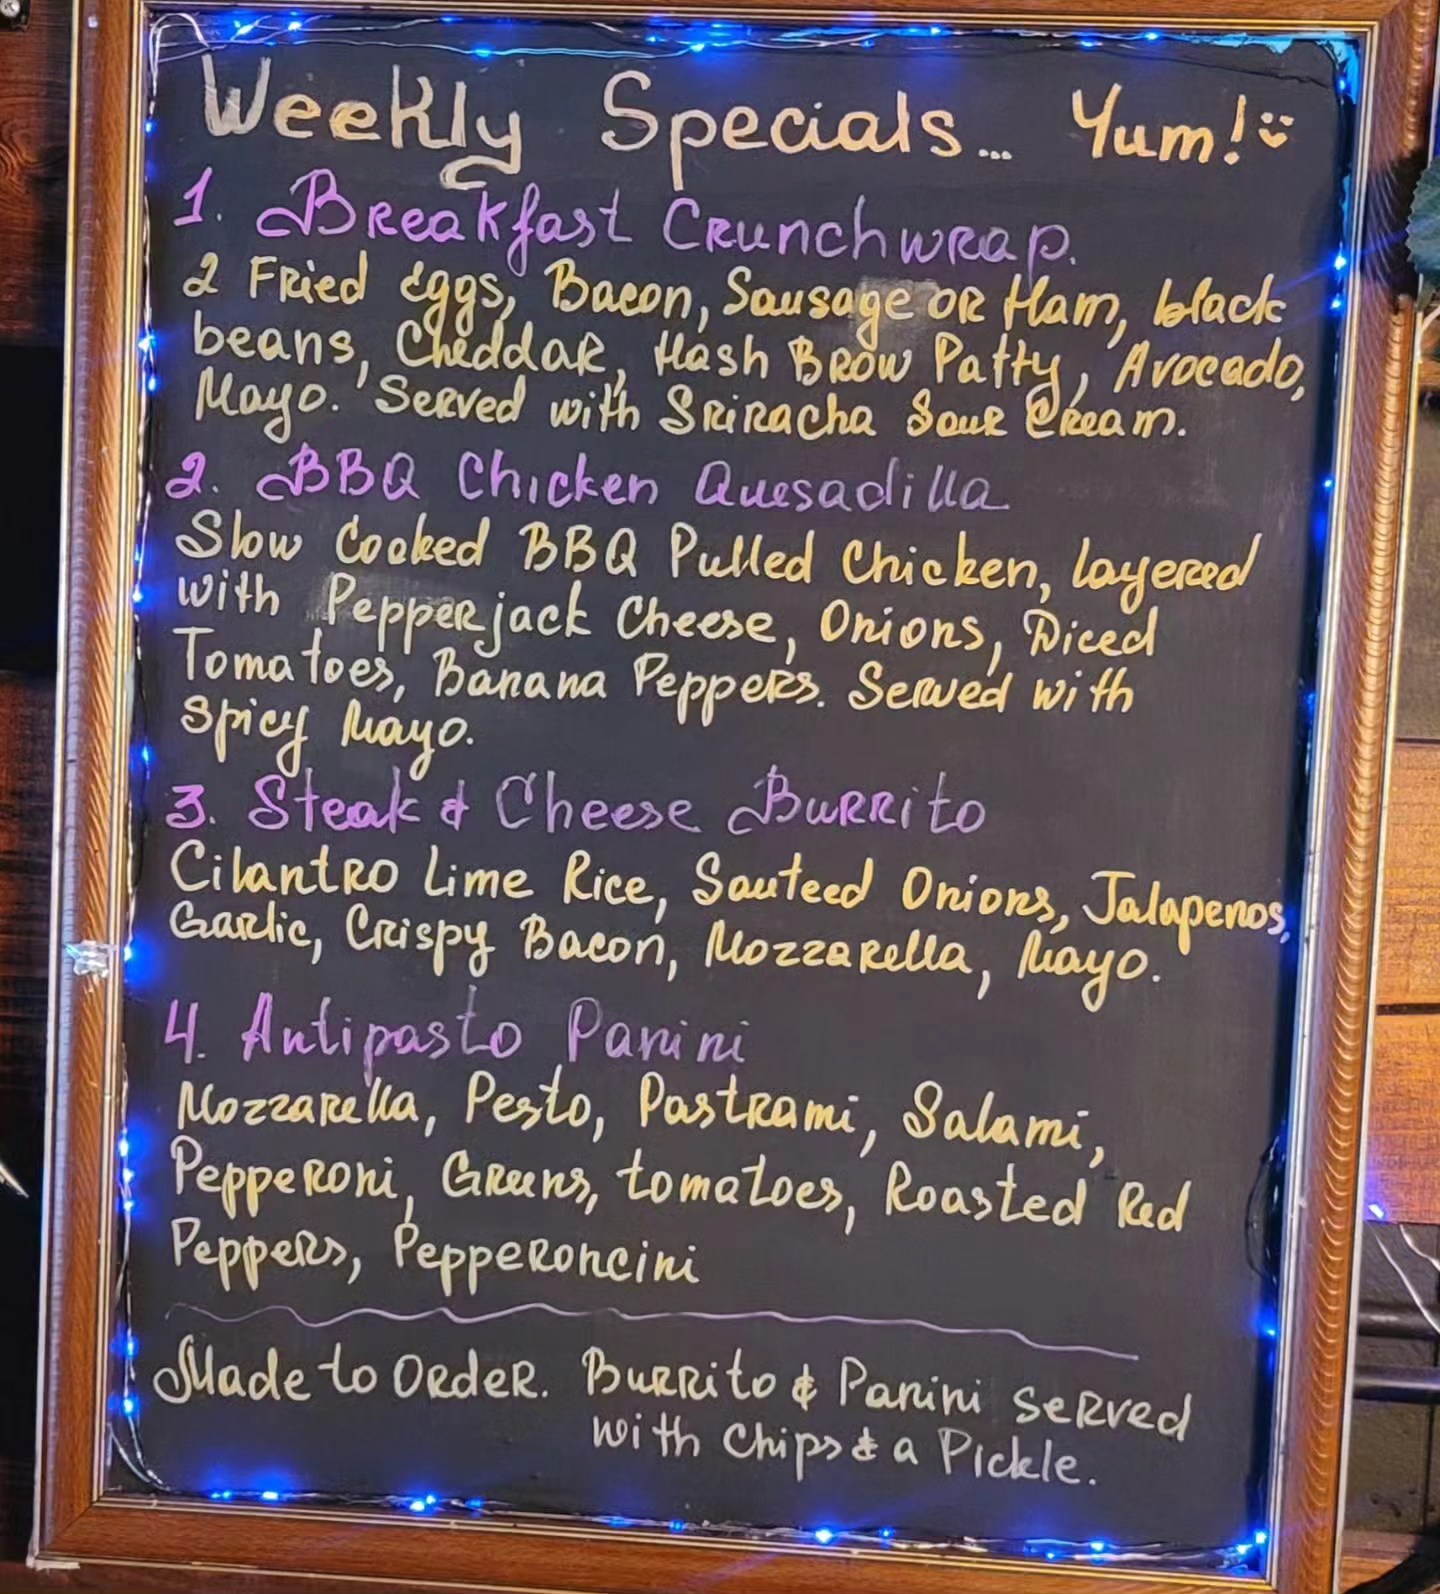 Weekly Specials... Yum!
1. Breakfast Crunchwrap.
2 Fried eggs, Bacon, Sausage or Ham, black
beans, Cheddar, Hash Brow Patty, Avocado,
Mayo. Served with Sriracha Sour Cream.
2. BBQ Chicken Quesadilla
Slow Cooked BBQ Pulled Chicken, layered
with Pepperjack Cheese, Onions, Diced
Tomatoes, Banana Peppers. Served with
Spicy Mayo.
3. Steak & Cheese Burrito
Cilantro Lime Rice, Sauteed Onions, Jalapenos,
Garlic, Crispy Bacon, Mozzarella, Mayo.
4. Antipasto Panini
Mozzarella, Pesto, Pastrami, Salami,
Pepperoni, Greens, tomatoes, Roasted Red
Peppers, Pepperoncini
Made to Order. Burrito & Panini served
with Chips & a Pickle.